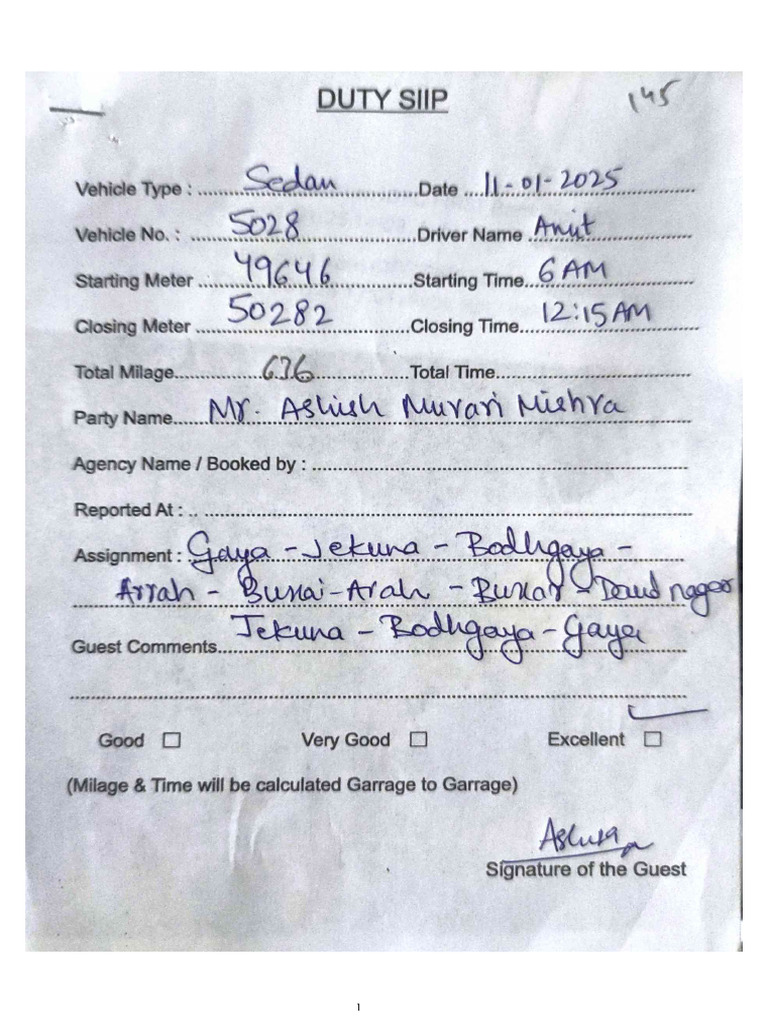 DUTY SIIP
145
Vehicle Type : Sedan Date 11-01-2025
Vehicle No. : 5028 Driver Name Amit
Starting Meter 49646 Starting Time 6 AM
Closing Meter 50282 Closing Time 12:15 AM
Total Milage 636 Total Time
Party Name Mr. Ashish Murari Mishra
Agency Name / Booked by :
Reported At :
Assignment : Gaya - Jekuna - Bodhgaya -
Arrah - Buxai - Arah - Buxar - Daud nagar
Guest Comments Jekuna - Bodhgaya - Gaya
Good Very Good Excellent
(Milage & Time will be calculated Garrage to Garrage)
Signature of the Guest
1